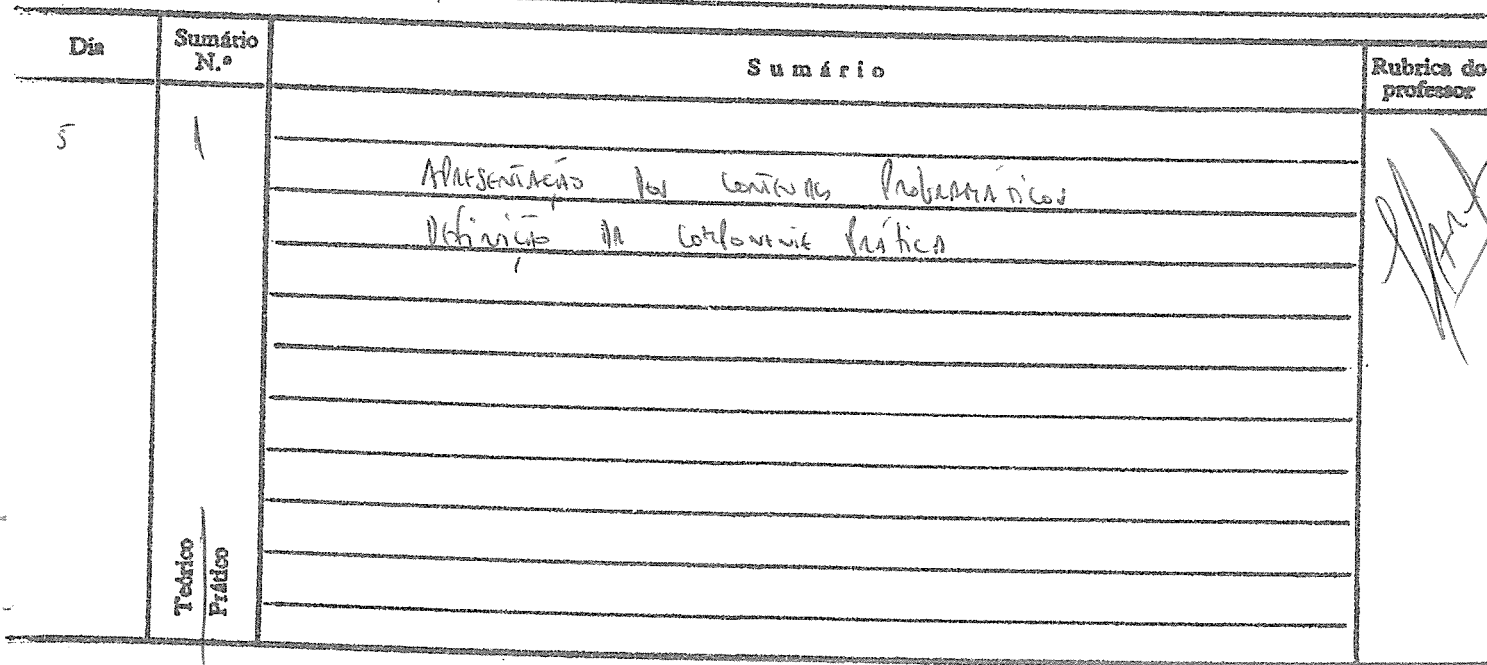 Dia
Sumário N.º
Sumário
Rubrica do professor
5
1
Apresentação dos conteúdos programáticos
Definição da componente prática
Teórico
Prático